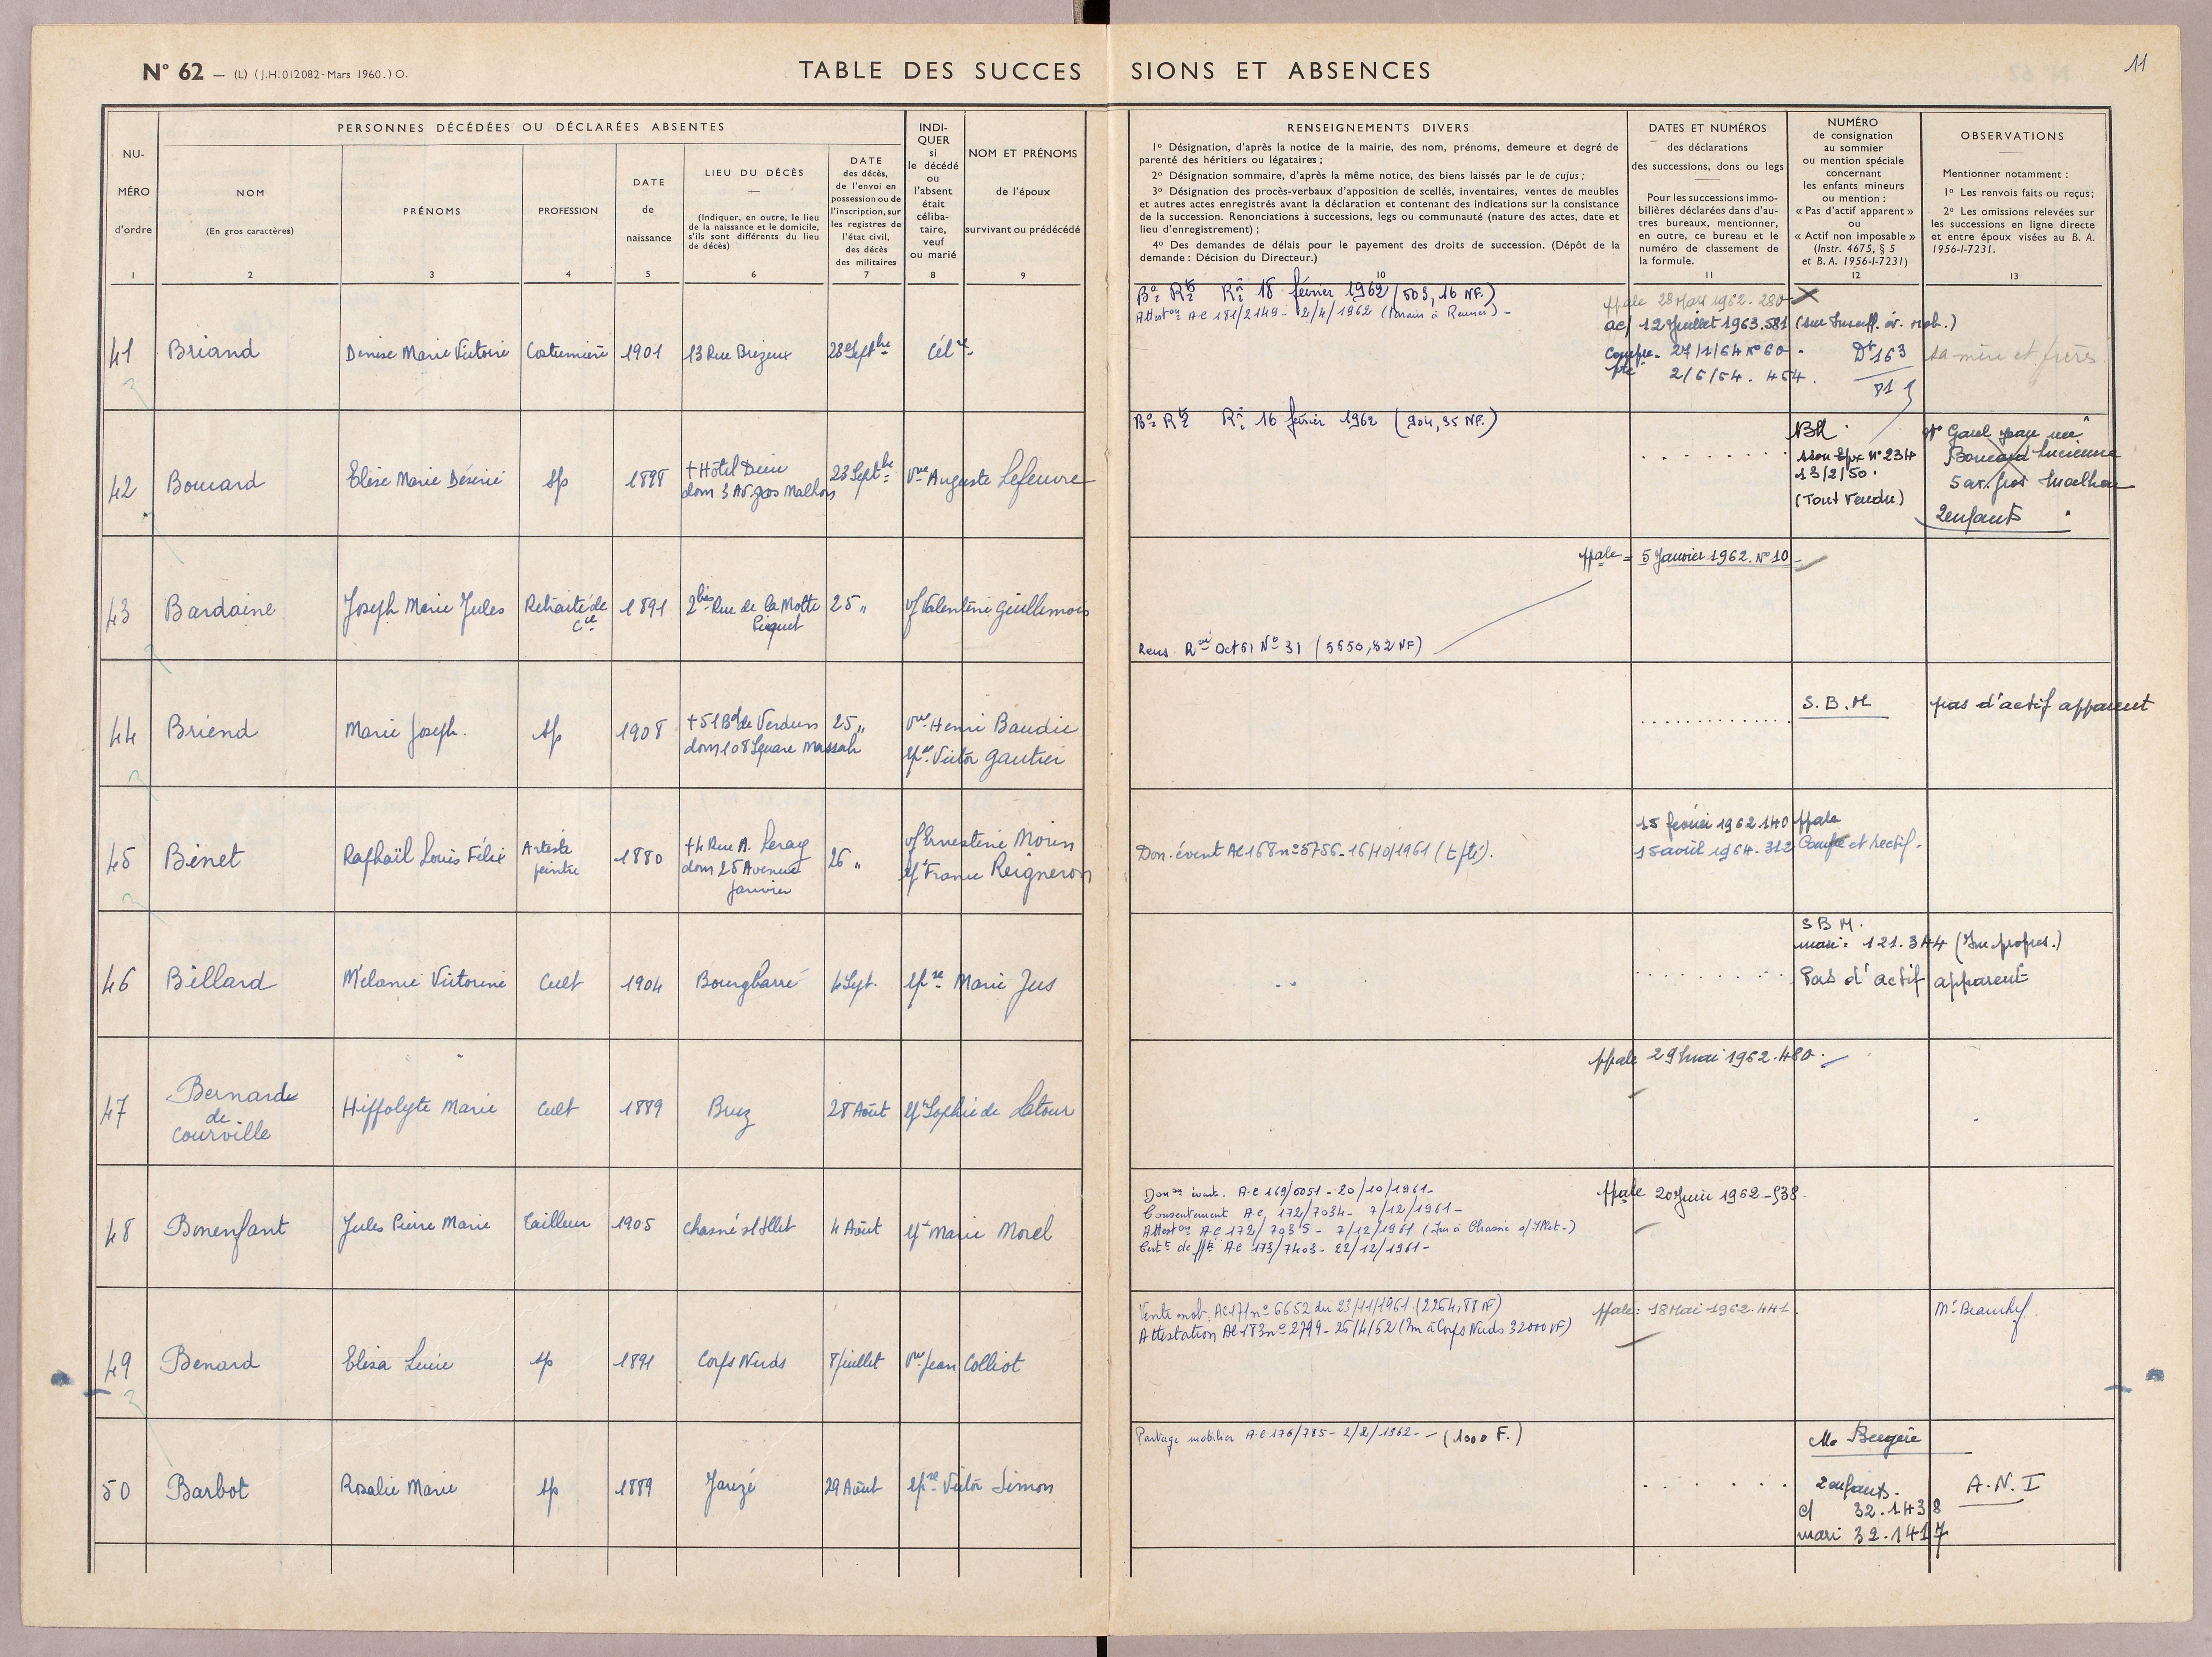 N° 62 — (L) (J.H. 012082 - Mars 1960.) O.
TABLE DES SUCCES SIONS ET ABSENCES
11
NU-
MÉRO
d'ordre
1
PERSONNES DÉCÉDÉES OU DÉCLARÉES ABSENTES
NOM
(En gros caractères)
2
PRÉNOMS
3
PROFESSION
4
DATE
de
naissance
5
LIEU DU DÉCÈS
(Indiquer, en outre, le lieu
de la naissance et le domicile,
s'ils sont différents du lieu
de décès)
6
DATE
des décès,
de l'envoi en
possession ou de
l'inscription, sur
les registres de
l'état civil,
des décès
des militaires
7
INDI-
QUER
si
le décédé
ou
l'absent
était
céliba-
taire,
veuf
ou marié
8
NOM ET PRÉNOMS
de l'époux
survivant ou prédécédé
9
RENSEIGNEMENTS DIVERS
1° Désignation, d'après la notice de la mairie, des nom, prénoms, demeure et degré de
parenté des héritiers ou légataires;
2° Désignation sommaire, d'après la même notice, des biens laissés par le de cujus;
3° Désignation des procès-verbaux d'apposition de scellés, inventaires, ventes de meubles
et autres actes enregistrés avant la déclaration et contenant des indications sur la consistance
de la succession. Renonciations à successions, legs ou communauté (nature des actes, date et
lieu d'enregistrement);
4° Des demandes de délais pour le payement des droits de succession. (Dépôt de la
demande : Décision du Directeur.)
10
DATES ET NUMÉROS
des déclarations
des successions, dons ou legs
Pour les successions immo-
bilières déclarées dans d'au-
tres bureaux, mentionner,
en outre, ce bureau et le
numéro de classement de
la formule.
11
NUMÉRO
de consignation
au sommier
ou mention spéciale
concernant
les enfants mineurs
ou mention :
« Pas d'actif apparent »
ou
« Actif non imposable »
(Instr. 4675, § 5
et B. A. 1956-I-7231)
12
OBSERVATIONS
Mentionner notamment :
1° Les renvois faits ou reçus;
2° Les omissions relevées sur
les successions en ligne directe
et entre époux visées au B. A.
1956-I-7231.
13
41 Briand Denise Marie Victoire Costumière 1901 13 Rue Brizeux 23 Septbre Celre
février 1962 (503,16 NF.)
Atteston AC 181/2149 - 2/4/1962
ppale 28 Mars 1962. 280
ac/ 12 Juillet 1963. 581
27/1/64 N° 60
2/6/64. 464.
Dt 163
sa mère et frères
42 Bouvard Elise Marie Désirée Sp 1898 + Hôtel Dieu
23 Septbre Vve Auguste Lefeuvre
16 février 1962 (904,35 NF.)
N° 234
13/2/50.
(Tout Vendu)
Bouvard Lucienne
2 enfants
43 Bardaine Joseph Marie Jules Retraité de Cce 1891 2bis Rue de la Motte
Picquet
25 " Valentine Guillemois
Rens. Oct 61 N° 31 (5650,82 NF)
ppale = 5 Janvier 1962. N° 10
44 Briend Marie Joseph. Sp 1908 + 51 Bd de Verdun
dom 108 Square Massah
25 " Vve Henri Baudic
épse Victor Gautier
S.B.M
pas d'actif apparent
45 Bénet Raphaël Louis Félix Artiste
peintre
1880 + 4 Rue A. Leray
dom 25 Avenue
Janvier
26 " vf Ernestine Morin
ép France Reigneron
Don. évent AC 168 n° 5756 - 16/10/1961
15 février 1962. 140 ppale
15 avril 1964. 312 Compte et rectif.
46 Billard Mélanie Victorine Cult 1904 Bourgbarré 4 Sept. épse Marie Jus
S B M.
mari : 121.344 (Im propres.)
Pas d'actif apparent
47 Bernard
de
Courville
Hippolyte Marie Cult 1889 Bruz 28 Août ép Sophie de Latour
ppale 29 mai 1962. 480.
48 Bonenfant Jules Pierre Marie Tailleur 1905 Chasné s/Illet 4 Août ép Marie Morel
Donon évent. AC 169/6051 - 20/10/1961 -
Consentement AC 172/7034 - 7/12/1961 -
Atteston AC 172/7035 - 7/12/1961 (Im à Chasné s/Illet -)
AC 173/7403 - 22/12/1961 -
ppale 20 Juin 1962 - 538
49 Benard Elisa Lucie Sp 1891 Corps Nuds 8 Juillet Vve Jean Colliot
Vente mob. AC 171 n° 6652 du 23/11/1961 (2264,88 NF)
Attestation AC 183 n° 2799 - 25/4/62 (Im à Corps Nuds 32000 NF)
ppale : 18 Mai 1962. 441
50 Barbot Rosalie Marie Sp 1889 Janzé 29 Août épse Victor Simon
Partage mobilier AC 176/785 - 2/2/1962 - (1000 F.)
2 enfants.
c/ 32.1438
mari 32.1417
A.N.I